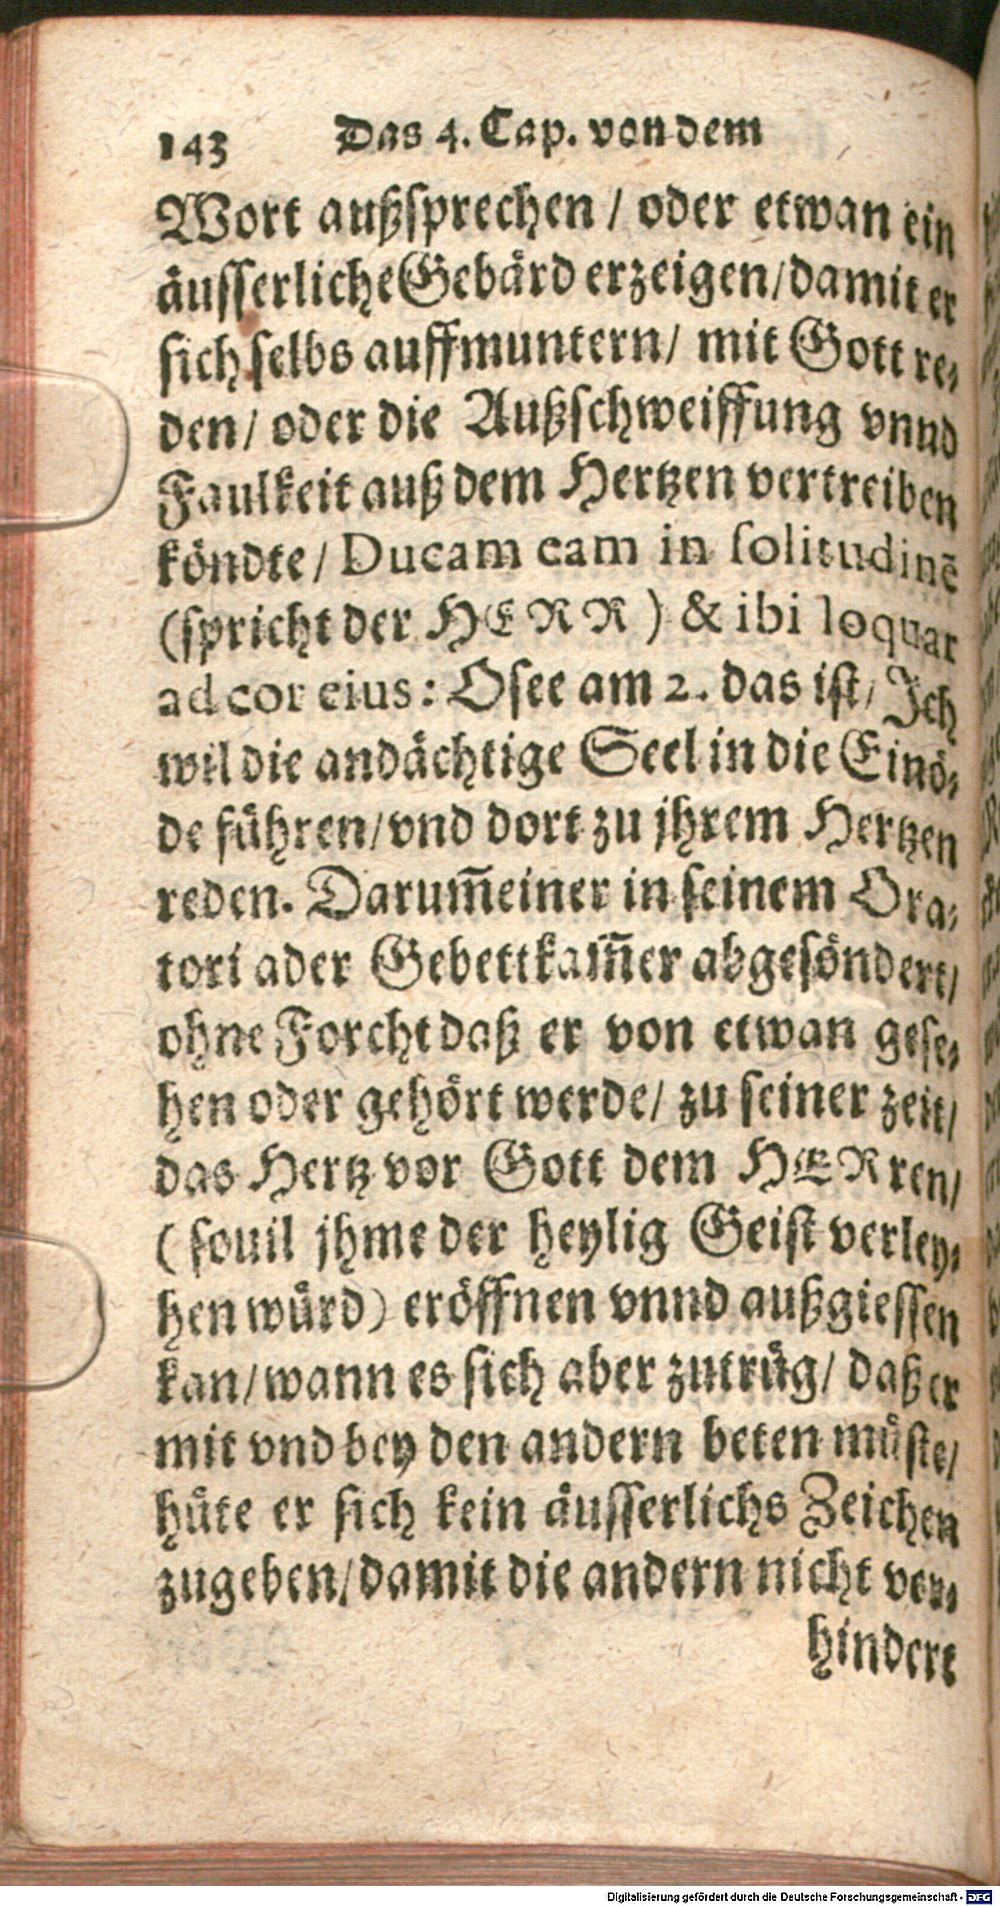 143 Das 4. Cap. von dem
Wort außsprechen / oder etwan ein
äusserliche Gebärd erzeigen/damit er
sich selbs auffmuntern/ mit Gott re-
den/ oder die Außschweiffung vnnd
Faulkeit auß dem Hertzen vertreiben
köndte/ Ducam eam in solitudinē
(spricht der HERR) & ibi loquar
ad cor eius: Osee am 2. das ist/ Ich
wil die andächtige Seel in die Einö-
de führen/vnd dort zu jhrem Hertzen
reden. Darum̅ einer in seinem Ora-
tori ader Gebettkam̅er abgesöndert/
ohne Forcht daß er von etwan gese-
hen oder gehört werde/ zu seiner zeit/
das Hertz vor Gott dem HERren/
(souil jhme der heylig Geist verley-
hen würd) eröffnen vnnd außgiessen
kan/wann es sich aber zutrüg/ daß er
mit vnd bey den andern beten müste/
hüte er sich kein äusserlichs Zeichen
zugeben/damit die andern nicht ver-
hindert
Digitalisierung gefördert durch die Deutsche Forschungsgemeinschaft - DFG